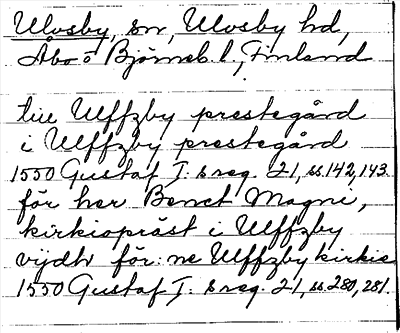 Ulvsby, sn, Ulvsby hd,
Åbo o Björneb. l., Finland
tiil Ulffzby prestegård
i Ulffzby prestegård
1550 Gustaf I: s reg. 21, ss. 142, 143.
för her Benct Magni,
kirkiopräst i Ulffzby
vijdh för: ne Ulffzby kirkie
1550 Gustaf I: s reg. 21, ss. 280, 281.